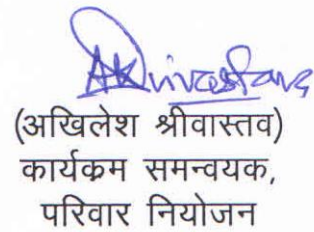 AKrivastava
(अखिलेश श्रीवास्तव)
कार्यक्रम समन्वयक,
परिवार नियोजन